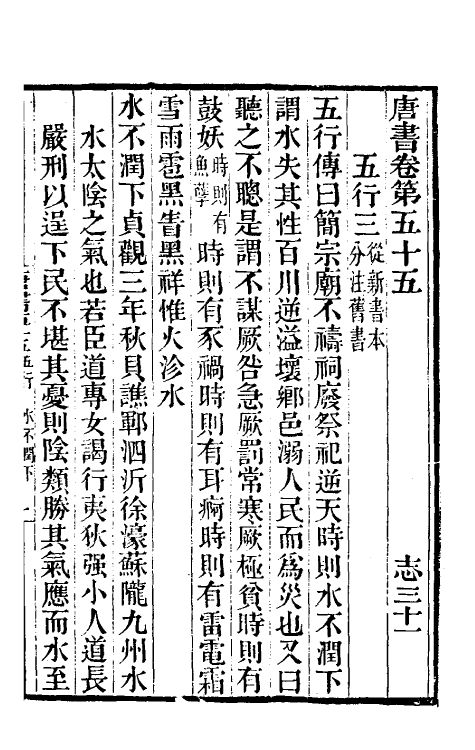 唐書卷第五十五　志三十一
五行三從新書本分注舊書
五行傳曰簡宗廟不禱祠廢祭祀逆天時則水不潤下
謂水失其性百川逆溢壞鄉邑溺人民而為災也又曰
聽之不聰是謂不謀厥咎急厥罰常寒厥極貧時則有
鼓妖時則有魚孽時則有豕禍時則有耳痾時則有雷電霜
雪雨雹黑眚黑祥惟火沴水
水不潤下貞觀三年秋貝譙鄆泗沂徐濠蘇隴九州水
水太陰之氣也若臣道專女謁行夷狄强小人道長
嚴刑以逞下民不堪其憂則陰類勝其氣應而水至